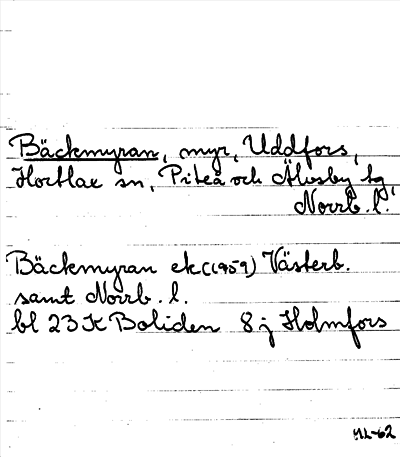 Bäckmyran, myr, Uddfors,
Hortlax sn, Piteå och Älvsby tg,
Norrb. l.
Bäckmyran ek (1959) Västerb.
samt Norrb. l.
bl 23 K Boliden 8 j Holmfors
ML-62